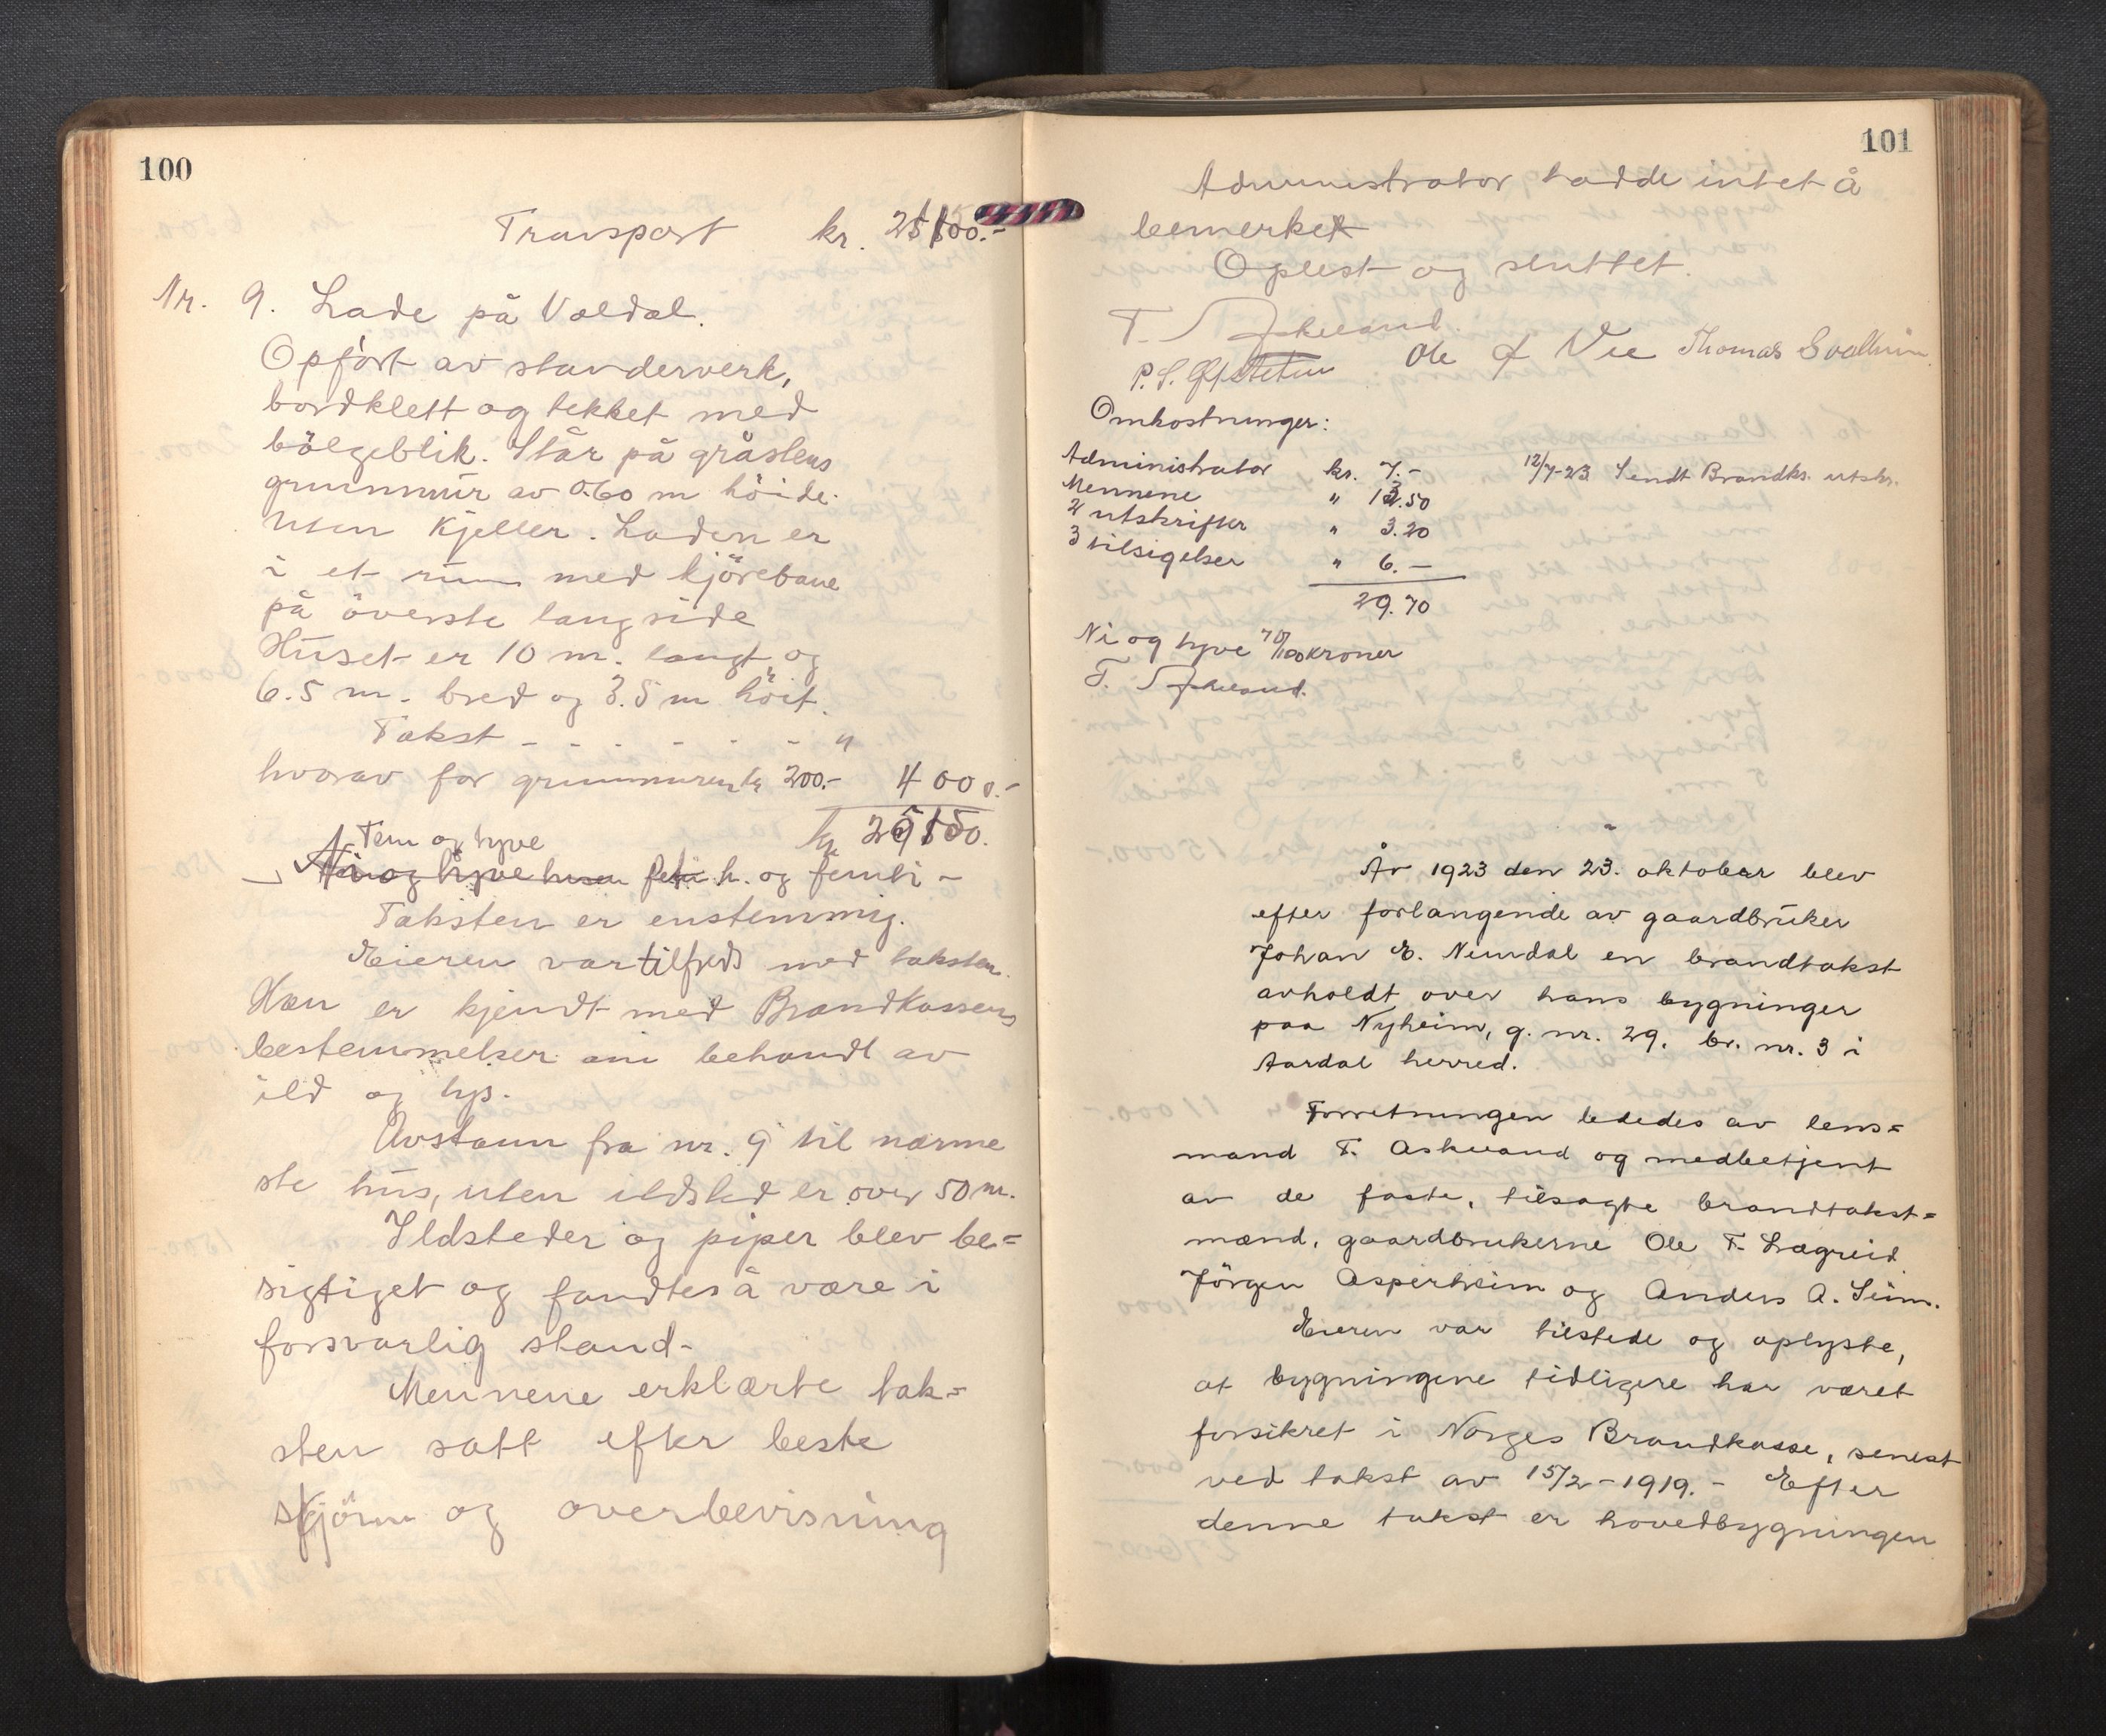 100
Transport kr.
Nr. 9. Lade på Vældal.
Opfört av standerverk,
bordklett og tekket med
bölgeblik. Står på gråstens
grunnmür av 0.60 m höide.
uten kjeller. Laden er
i et rüm med kjörebane
på överste langside
Hüset er 10 m. langt og
6.5 m. bred og 3.5 m höit.
Takst - - - - - - "
hvorav for grunnmuren kr 200.- 4000.-
kr
Fem og tyve
Ni og tyve h. og femti -
Taksten er enstemmig.
Eieren var tilfreds med taksten.
Han er kjendt med Brandkassens
bestemmelser om behandl av
ild og lys.
Avstann fra nr. 9 til nærme
ste hüs, uten ildsted er over 50 m.
Ildsteder og piper blev be=
sigtiget og fandtes å være i
forsvarlig stand-
Mennene erklærte tak=
sten satt efter beste
skjönn og overbevisning
101
Administrator hadde intet å
bemerke
Oplest og sluttet.
T.
P. S. Ole Vee Thomas
Omkostninger:
Administrator kr. 7.- 12/7-23 Sendt Brandks. utskr.
Mennene " 13.50
utskrifter " 3.20
3 tilsigelser " 6.-
29.70
Ni og tyve 70/100 kroner
T.
År 1923 den 23. oktober blev
efter forlangende av gaardbrüker
Johan E. Nundal en brandtakst
avholdt over hans bygninger
paa Nyheim, g. nr. 29. br. nr. 3 i
Aardal herred.
Forretningen lededes av lens=
mand T. Askeland og medbetjent
av de faste, tilsagte brandtakst=
mænd, gaardbrukerne Ole T. Lægreid
Jörgen Asperheim og Anders A. Seim.
Eieren var tilstede og oplyste,
at bygningene tidligere har været
forsikret i Norges Brandkasse, senest
ved takst av 15/2-1919.- Efter
denne takst er hovedbygningen